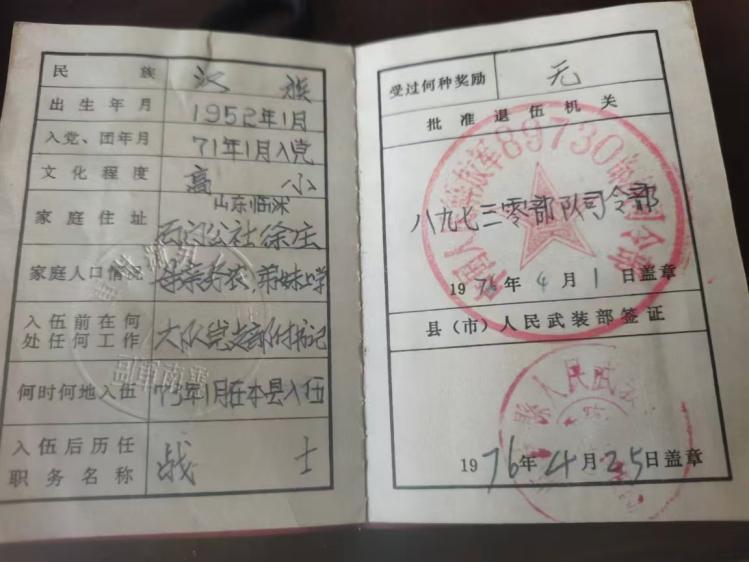 民族 汉族
出生年月 1952年1月
入党、团年月 71年1月入党
文化程度 高小
家庭住址 山东临沭
石门公社徐庄
家庭人口情况 母亲务农 弟妹上学
入伍前在何
处任何工作 大队党支部付书记
何时何地入伍 73年1月在本县入伍
入伍后历任
职务名称 战士
受过何种奖励 无
批准退伍机关
89730
八九七三零部队司令部
1976年4月1日盖章
县(市)人民武装部签证
县人民武
1976年4月25日盖章